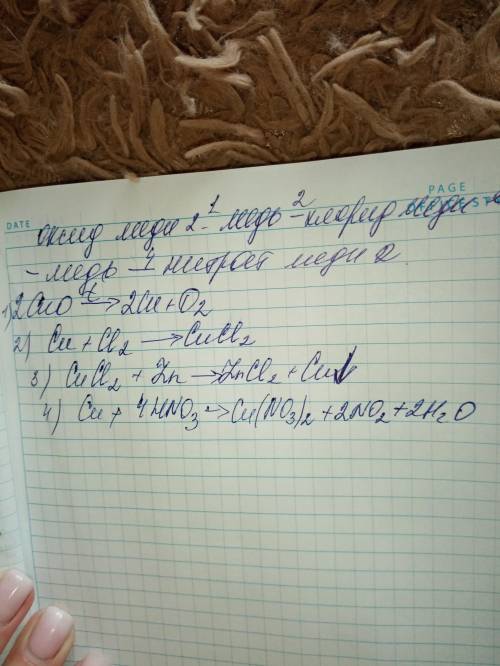 DATE
PAGE
оксид меди 2 -1 медь -2 хлорид меди
- медь -4 нитрат меди 2.
1) 2CuO t→ 2Cu + O2
2) Cu + Cl2 → CuCl2
3) CuCl2 + Zn → ZnCl2 + Cu↓
4) Cu + 4HNO3 → Cu(NO3)2 + 2NO2 + 2H2O